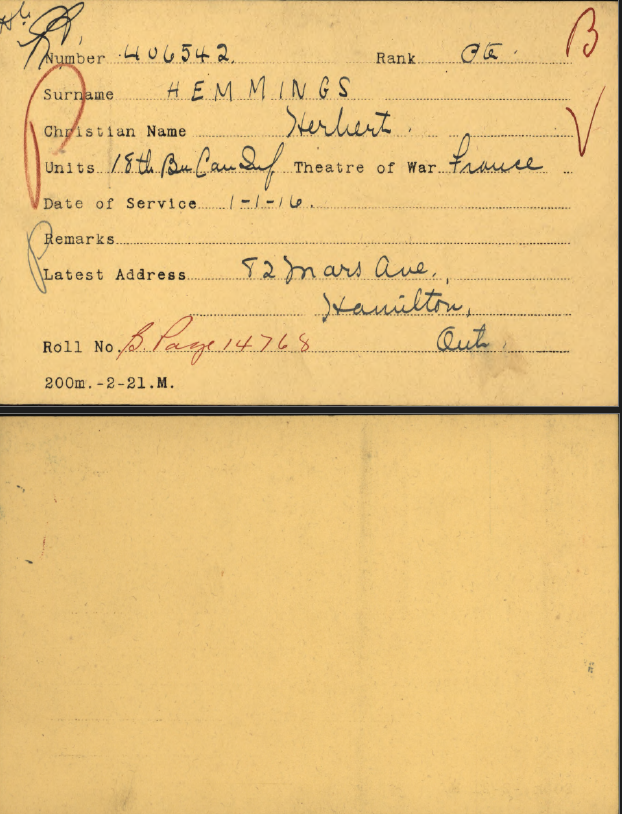 Number 406542. Rank Pte. B
Surname HEMMINGS
Christian Name Herbert. V
Units 18th Bn Can Inf Theatre of War France
Date of Service 1-1-16.
Remarks
Latest Address 82 Mars Ave.,
Hamilton,
Roll No. B. Page 14768 Ont.
200m.-2-21.M.